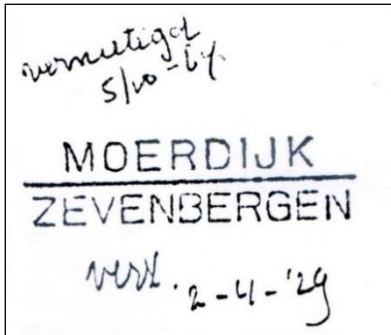 vernietigd
5/10-'64.
MOERDIJK
ZEVENBERGEN
verv. 2-4-'29